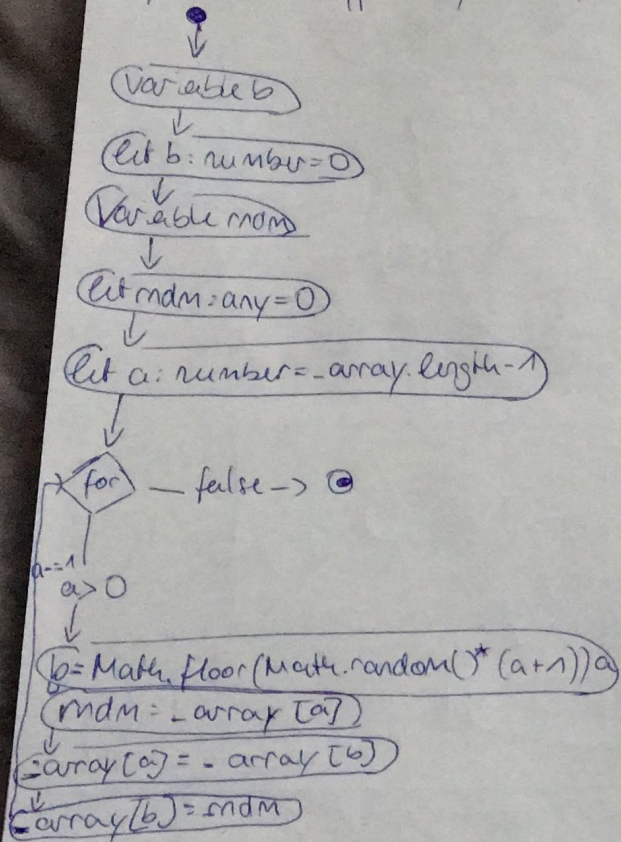 Variable b
let b: number=0
Variable rndm
let rndm: any=0
let a: number=_array.length-1
for — false ->
a-=1
a>0
b=Math.floor(Math.random()*(a+1))a
rndm=_array[a]
_array[a]=_array[b]
_array[b]=rndm